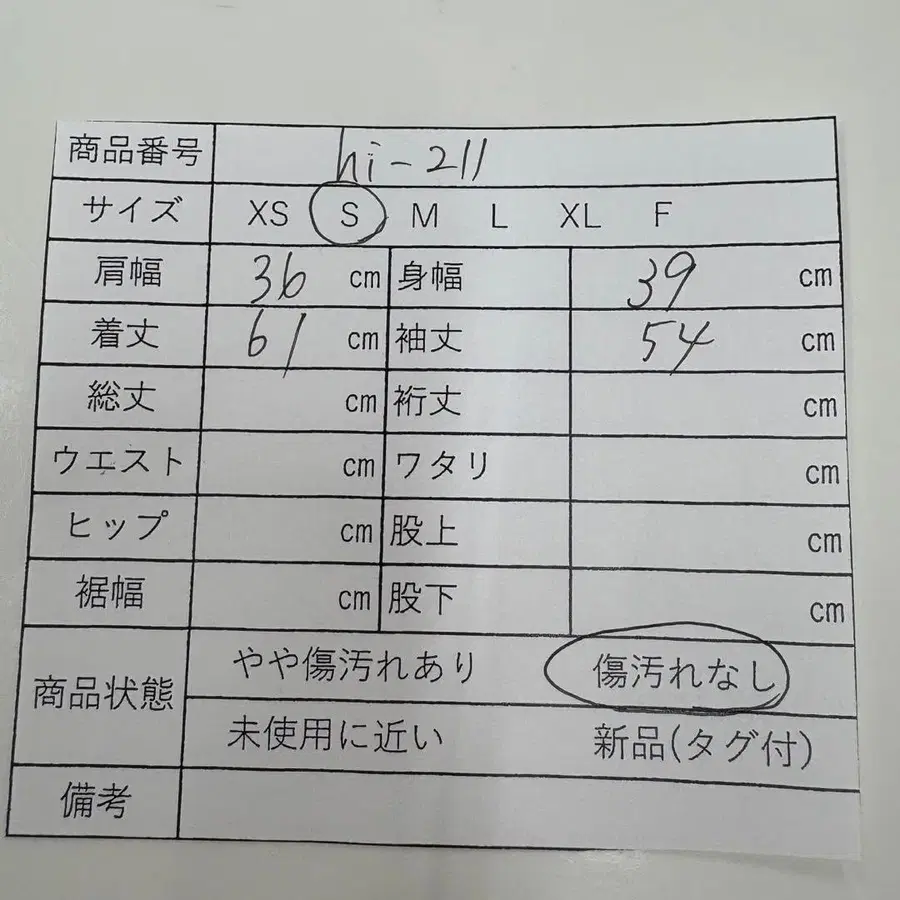 商品番号 hi-211
サイズ XS S M L XL F
肩幅 36 cm 身幅 39 cm
着丈 61 cm 袖丈 54 cm
総丈 cm 裄丈 cm
ウエスト cm ワタリ cm
ヒップ cm 股上 cm
裾幅 cm 股下 cm
商品状態 やや傷汚れあり 傷汚れなし
未使用に近い 新品(タグ付)
備考